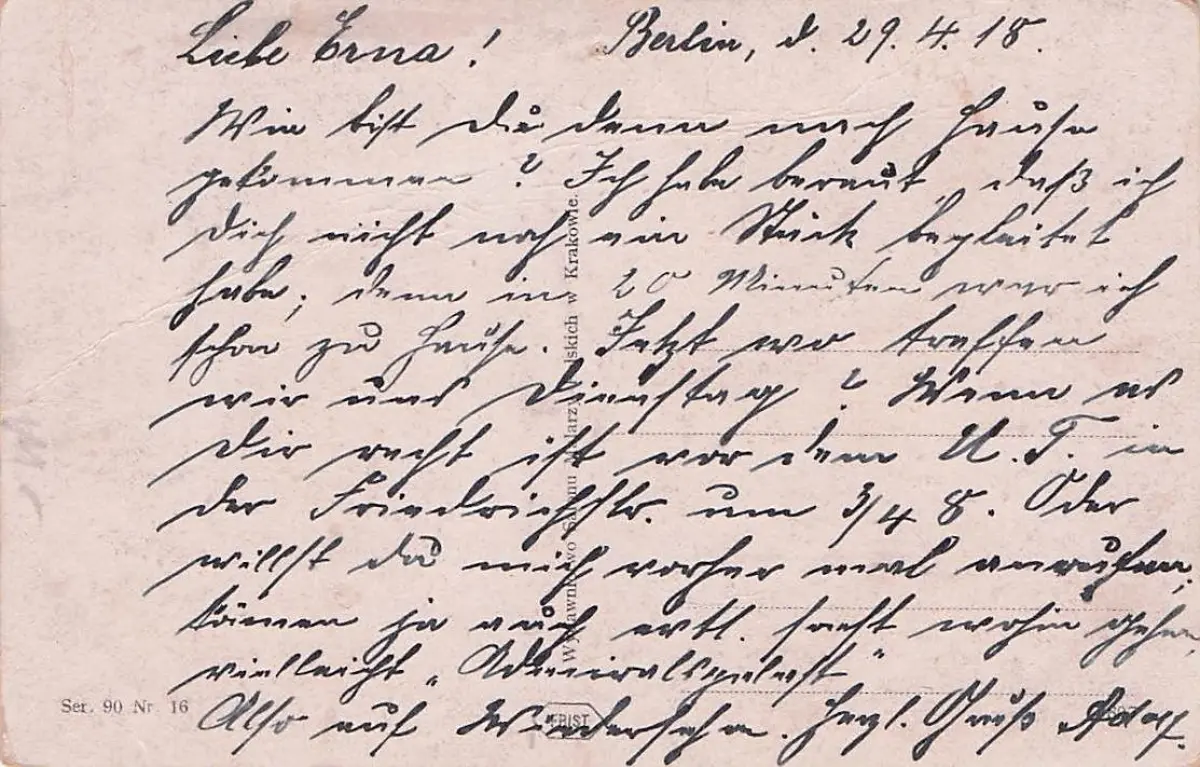 Liebe Erna! Berlin, d. 29.4.18.
Wie bist Du denn nach Hause
gekommen? Ich habe bereut, daß ich
Dich nicht noch ein Stück begleitet
habe, denn in 20 Minuten war ich
schon zu Hause. Jetzt wo treffen
wir uns Dienstag? Wenn es
Dir recht ist vor dem U.T. in
der Friedrichstr. um 3/4 8. Oder
willst du mich vorher mal anrufen,
können ja auch evtl. sonst wohin gehen,
vielleicht „Admiralspalast"
Also auf Wiedersehn. Herzl. Gruß Adolf.
Ser. 90 Nr. 16